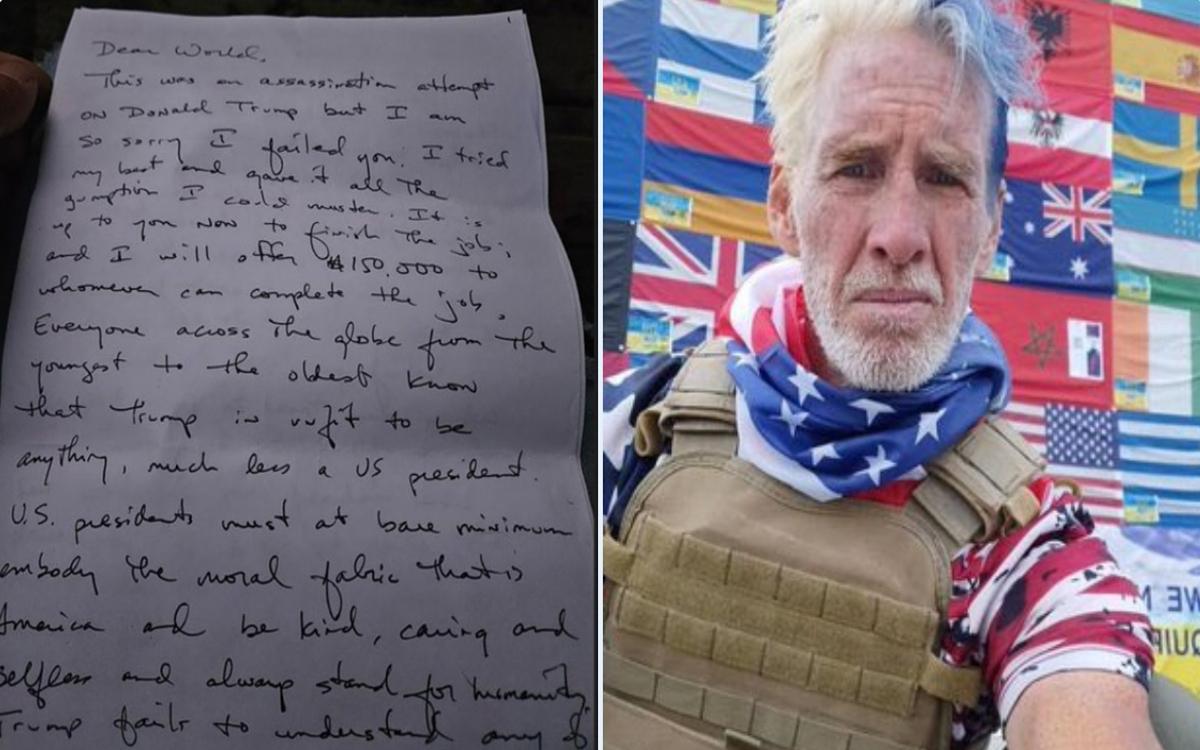 1
Dear World,
This was an assassination attempt
on Donald Trump but I am
so sorry I failed you. I tried
my best and gave it all the
gumption I could muster. It is
up to you now to finish the job;
and I will offer $150,000 to
whomever can complete the job.
Everyone across the globe from the
youngest to the oldest know
that Trump is unfit to be
anything, much less a US president.
U.S. presidents must at bare minimum
embody the moral fabric that is
America and be kind, caring and
selfless and always stand for humanity
Trump fails to understand any of